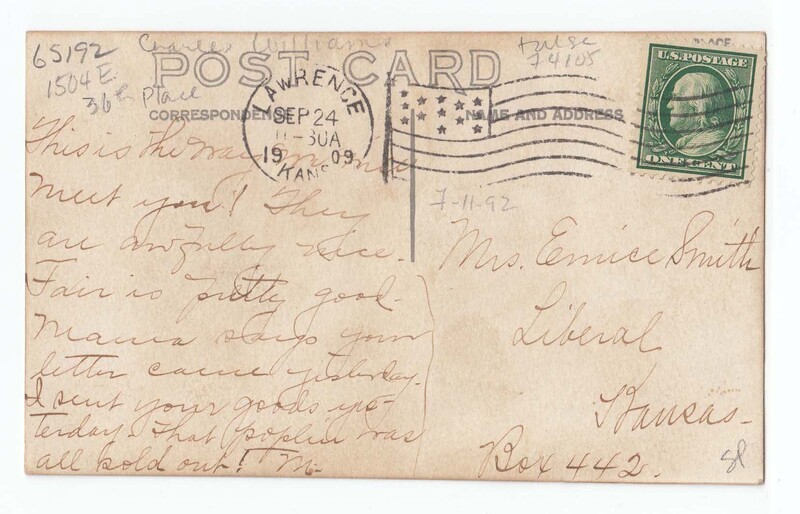 65192 Charles Williams Tulsa
1504 E. 74105
36th Place
POST CARD
CORRESPONDENCE NAME AND ADDRESS
LAWRENCE
SEP 24
11-30A
1909
KANS.
U.S. POSTAGE
ONE CENT
7-11-92
This is the way
meet you! They
are awfully nice.
Fair is pretty good.
Mama says your
letter came yesterday.
I sent your goods yes-
terday. That poplin was
all sold out! M.
Mrs. Eunice Smith
Liberal
Kansas.
Box 442.